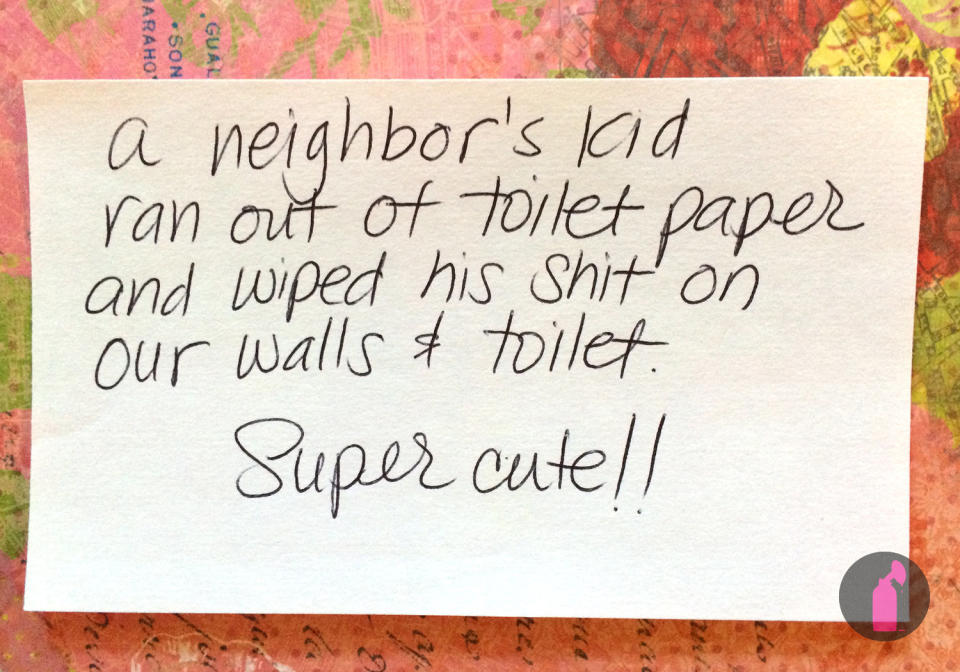 GUAL
SON
ARAHO
a neighbor's kid
ran out of toilet paper
and wiped his shit on
our walls & toilet.
Super cute!!